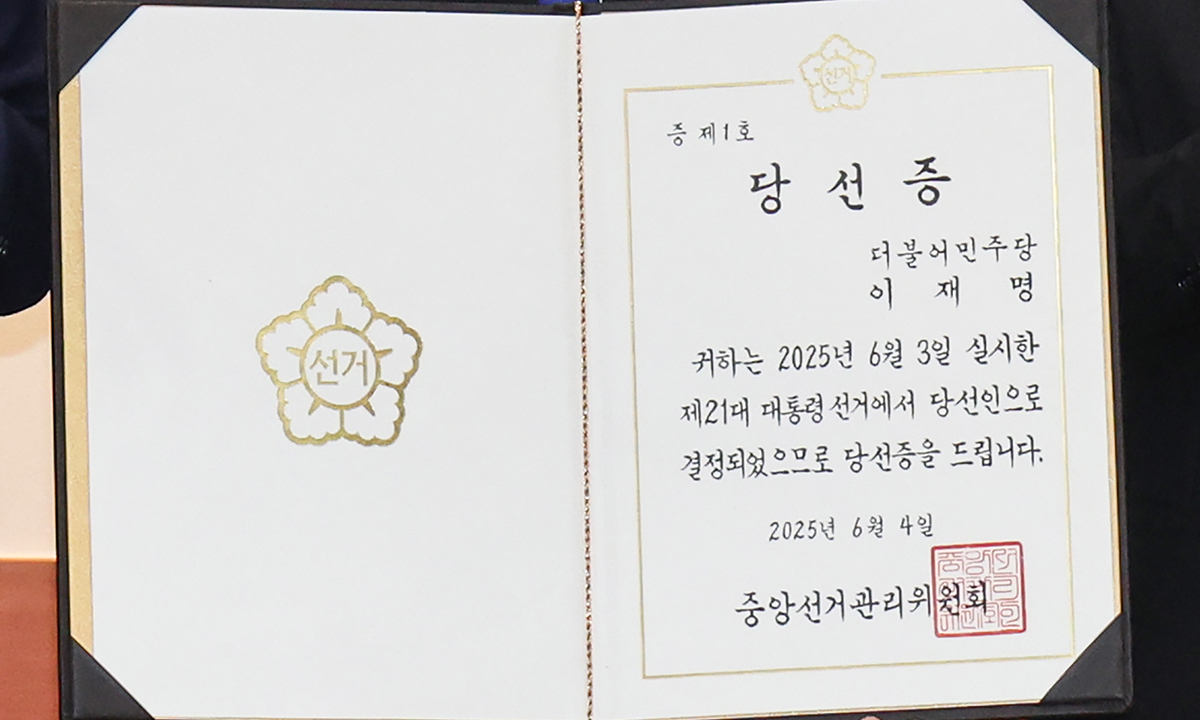 선거
선거
증 제1호
당선증
더불어민주당
이재명
귀하는 2025년 6월 3일 실시한
제21대 대통령선거에서 당선인으로
결정되었으므로 당선증을 드립니다.
2025년 6월 4일
중앙선거관리위원회